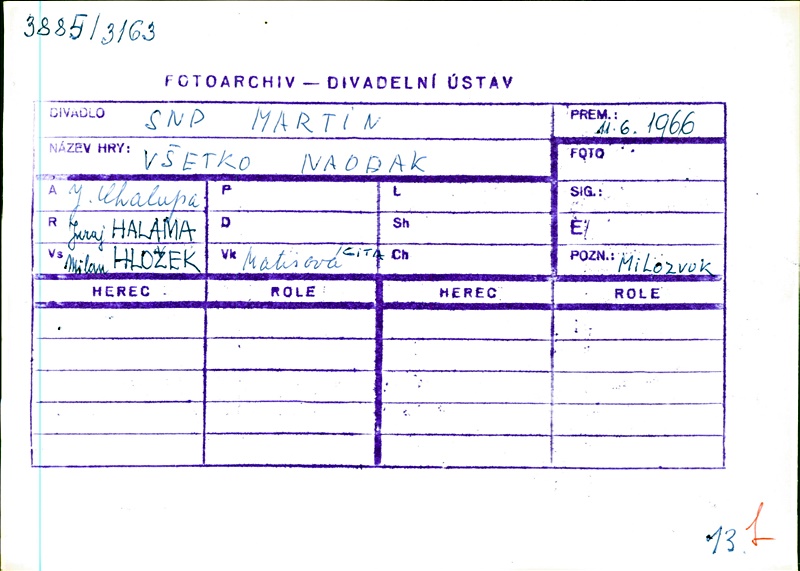 3885/3163
FOTOARCHIV — DIVADELNÍ ÚSTAV
DIVADLO SNP MARTIN
PREM.: 11.6.1966
NÁZEV HRY: VŠETKO NAODAK
FOTO
A J. Chalupa P L SIG.:
R Juraj HALAMA D Sh Č/
Vs Milan HLOŽEK Vk Matisová /CITA Ch POZN.: Milozvuk
HEREC ROLE HEREC ROLE
13